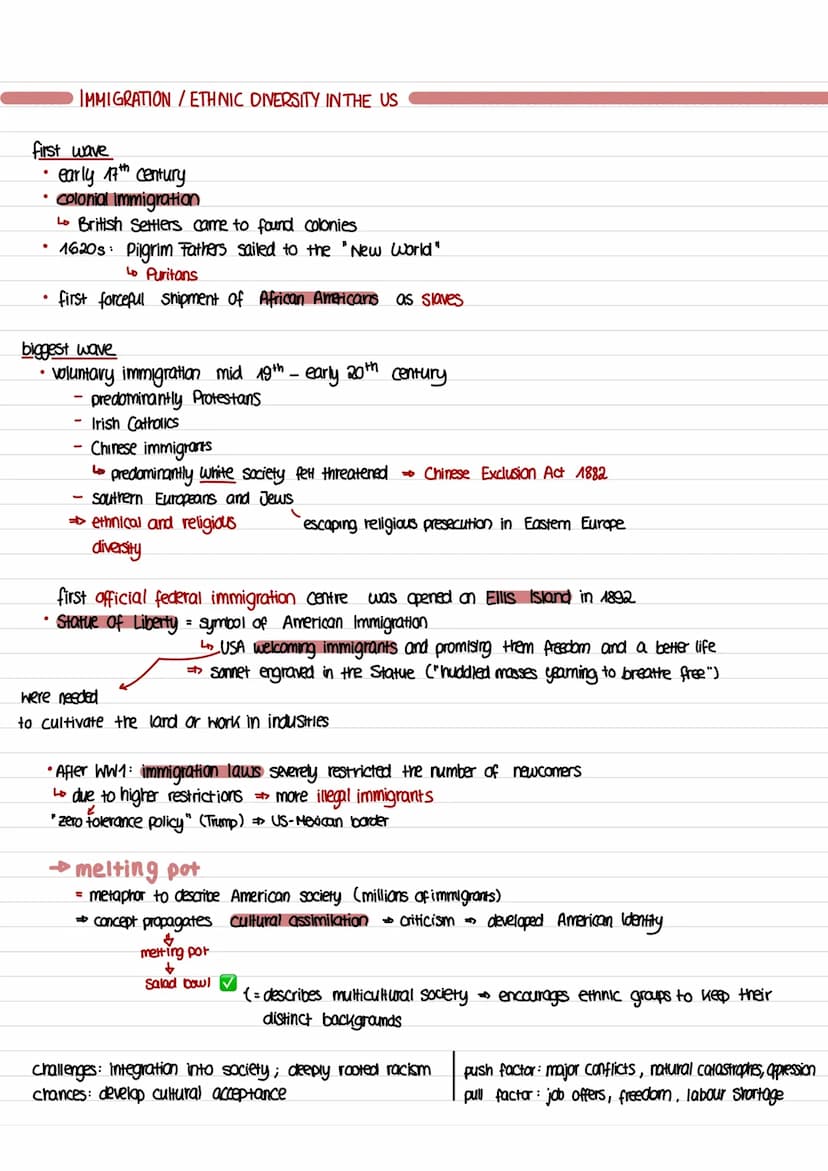 IMMIGRATION / ETHNIC DIVERSITY IN THE US
first wave
• early 17th century
• colonial immigration
↳ British Settlers came to found colonies
• 1620s: Pilgrim Fathers sailed to the "New World"
↳ Puritans
• first forceful shipment of African Americans as slaves
biggest wave
• voluntary immigration mid 19th – early 20th century
– predominantly Protestans
– Irish Catholics
– Chinese immigrants
↳ predominantly white society felt threatened ⇒ Chinese Exclusion Act 1882
– Southern Europeans and Jews
⇒ ethnical and religious escaping religious presecution in Eastern Europe
diversity
first official federal immigration centre was opened on Ellis Island in 1892
• Statue of Liberty = symbol of American Immigration
↳ USA welcoming immigrants and promising them freedom and a better life
⇒ sonnet engraved in the Statue ("huddled masses yearning to breathe free")
were needed
to cultivate the land or work in industies
• After WW1: immigration laws severely restricted the number of newcomers
↳ due to higher restrictions ⇒ more illegal immigrants
"zero tolerance policy" (Trump) ⇒ US-Mexican border
→ melting pot
= metaphor to describe American society (millions of immigrants)
⇒ concept propagates cultural assimilation → criticism ⇒ developed American Identity
melting pot
↓
Salad bowl ✅
(= describes multicultural society → encourages ethnic groups to keep their
distinct backgrounds
challenges: integration into society; deeply rooted racism
chances: develop cultural acceptance
push factor: major conflicts, natural catastrophes, oppression
pull factor: job offers, freedom, labour shortage